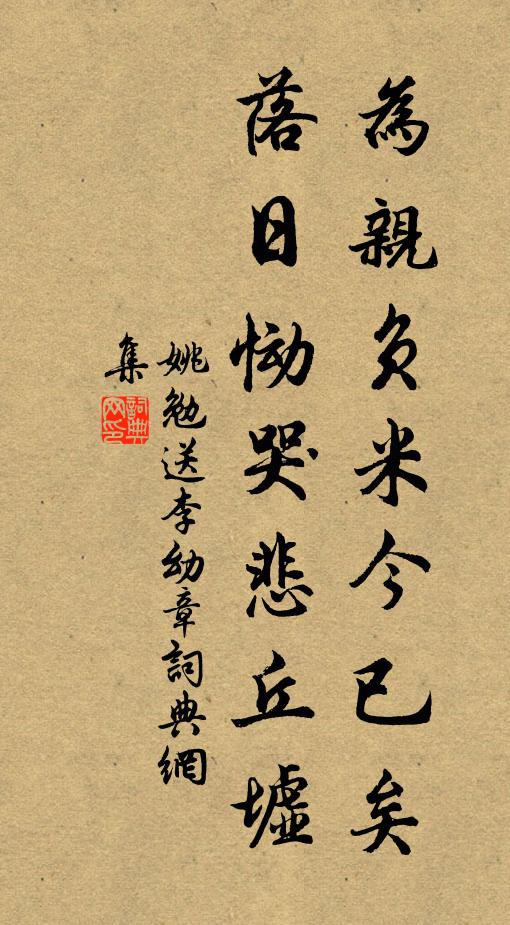 為親負米今已矣
落日慟哭悲丘墟
姚勉送李幼章詞典網
集
詞典
網印